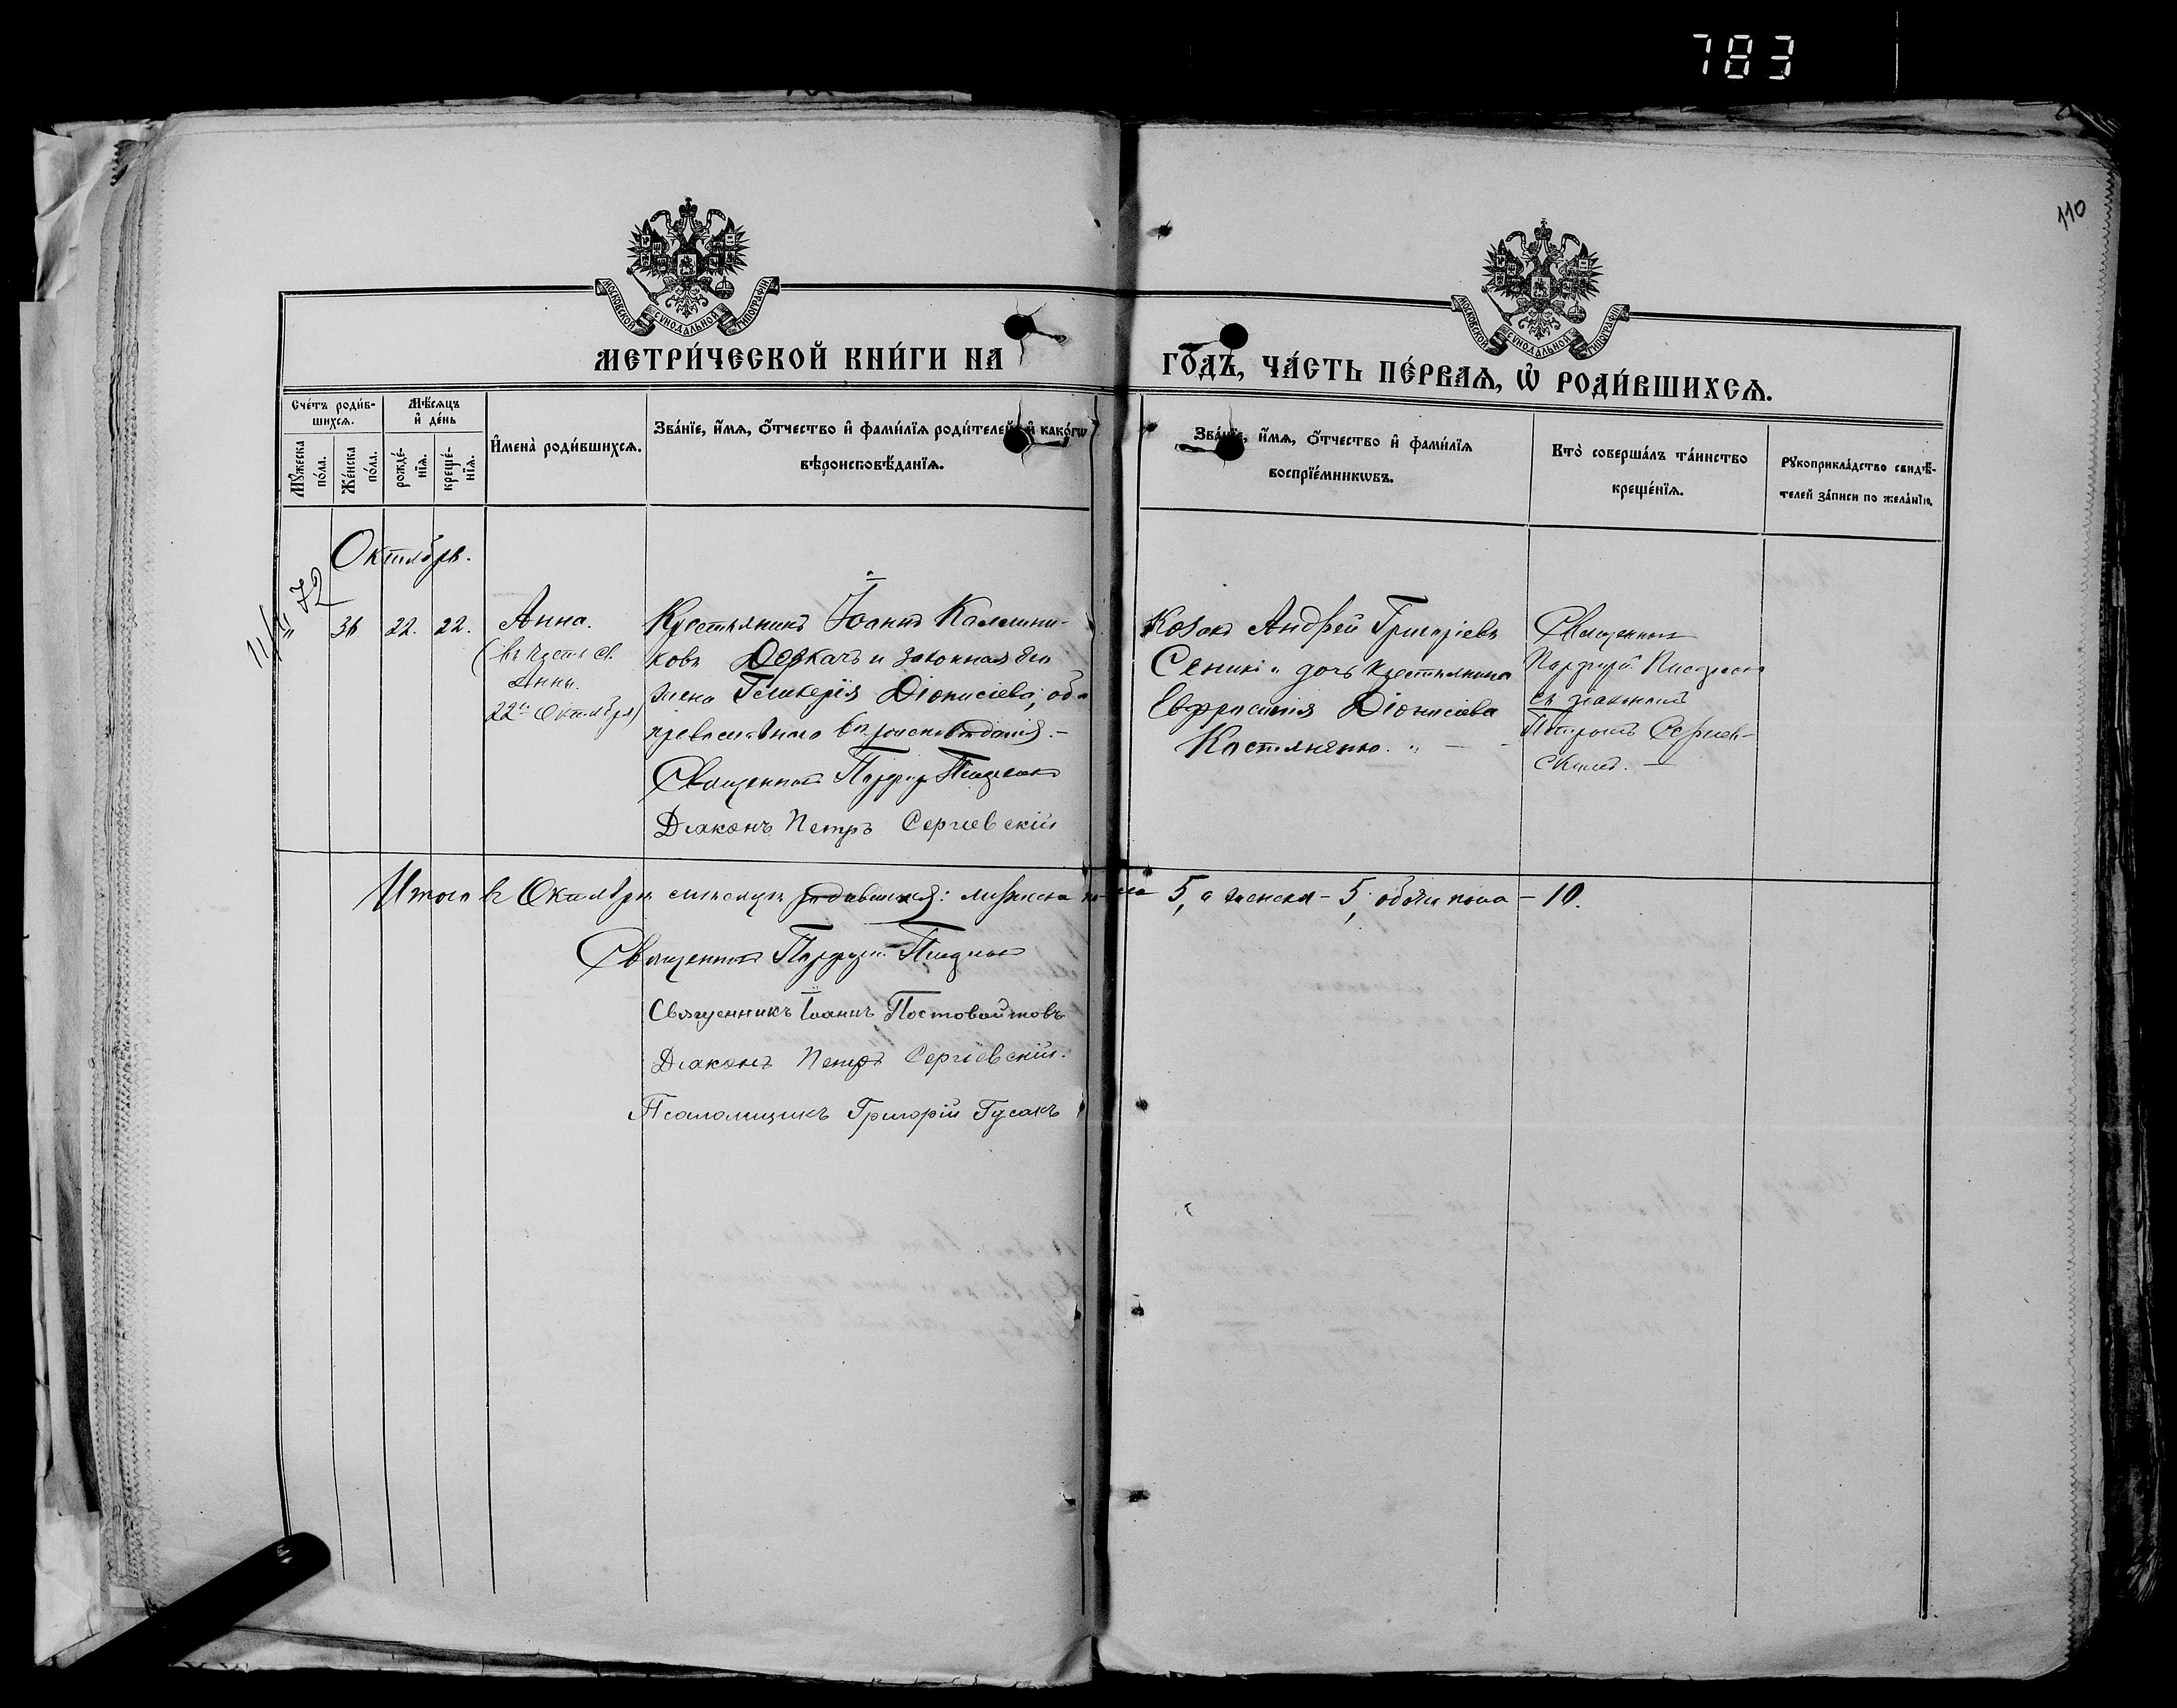 783
110
МОСКОВСКОЙ СѴНОДАЛЬНОЙ ТИПОГРАФІИ
МОСКОВСКОЙ СѴНОДАЛЬНОЙ ТИПОГРАФІИ
МЕТРИ́ЧЕСКОЙ КНИ́ГИ НА
ГО́ДЪ, ЧА́СТЬ ПЕ́РВАѦ, Ѡ҆ РОДИ́ВШИХСѦ.
Сче́тъ роди́в-
шихсѧ.
Мꙋ́жеска
по́ла.
Же́нска
по́ла.
Мѣ́сѧцъ
и҆ де́нь
рожде́-
нїѧ.
креще́-
нїѧ.
И҆мена̀ роди́вшихсѧ.
Зва́нїе, и҆́мѧ, ѻ҆́тчество и҆ фами́лїѧ роди́телей, и҆ како́гѡ
вѣроисповѣ́данїѧ.
Зва́нїе, и҆́мѧ, ѻ҆́тчество и҆ фами́лїѧ
воспрїе́мникѡвъ.
Кто̀ соверша́лъ та́инство
креще́нїѧ.
Рꙋкоприкла́дство свидѣ́-
телей за́писи по жела́нїю.
Октябрь.
72
" 36 22. 22.
Анна.
(въ честь св.
Анны.
22го Октября)
Крестьянинъ Іоаннъ Каллини-
ковъ Деркачъ и законная его
жена Гликерія Діонисіева, оба
православнаго вѣроисповѣданія. –
Священникъ Порфирій
Діаконъ Петръ Сергіевскій
Козакъ Андрей Григоріевъ
и дочь крестьянина
Евфросинія Діонисіева
Костяненко. " –
Священникъ
Порфирій
съ діакономъ
Петромъ Сергіев-
скимъ. –
Итого въ Октябрѣ мѣсяцѣ родившихся: мужеска пола 5, а женска – 5, обоего пола – 10.
Священникъ Порфирій
Священникъ Іоаннъ Постовойтовъ
Діаконъ Петръ Сергіевскій.
Псаломщикъ Григорій Гусакъ